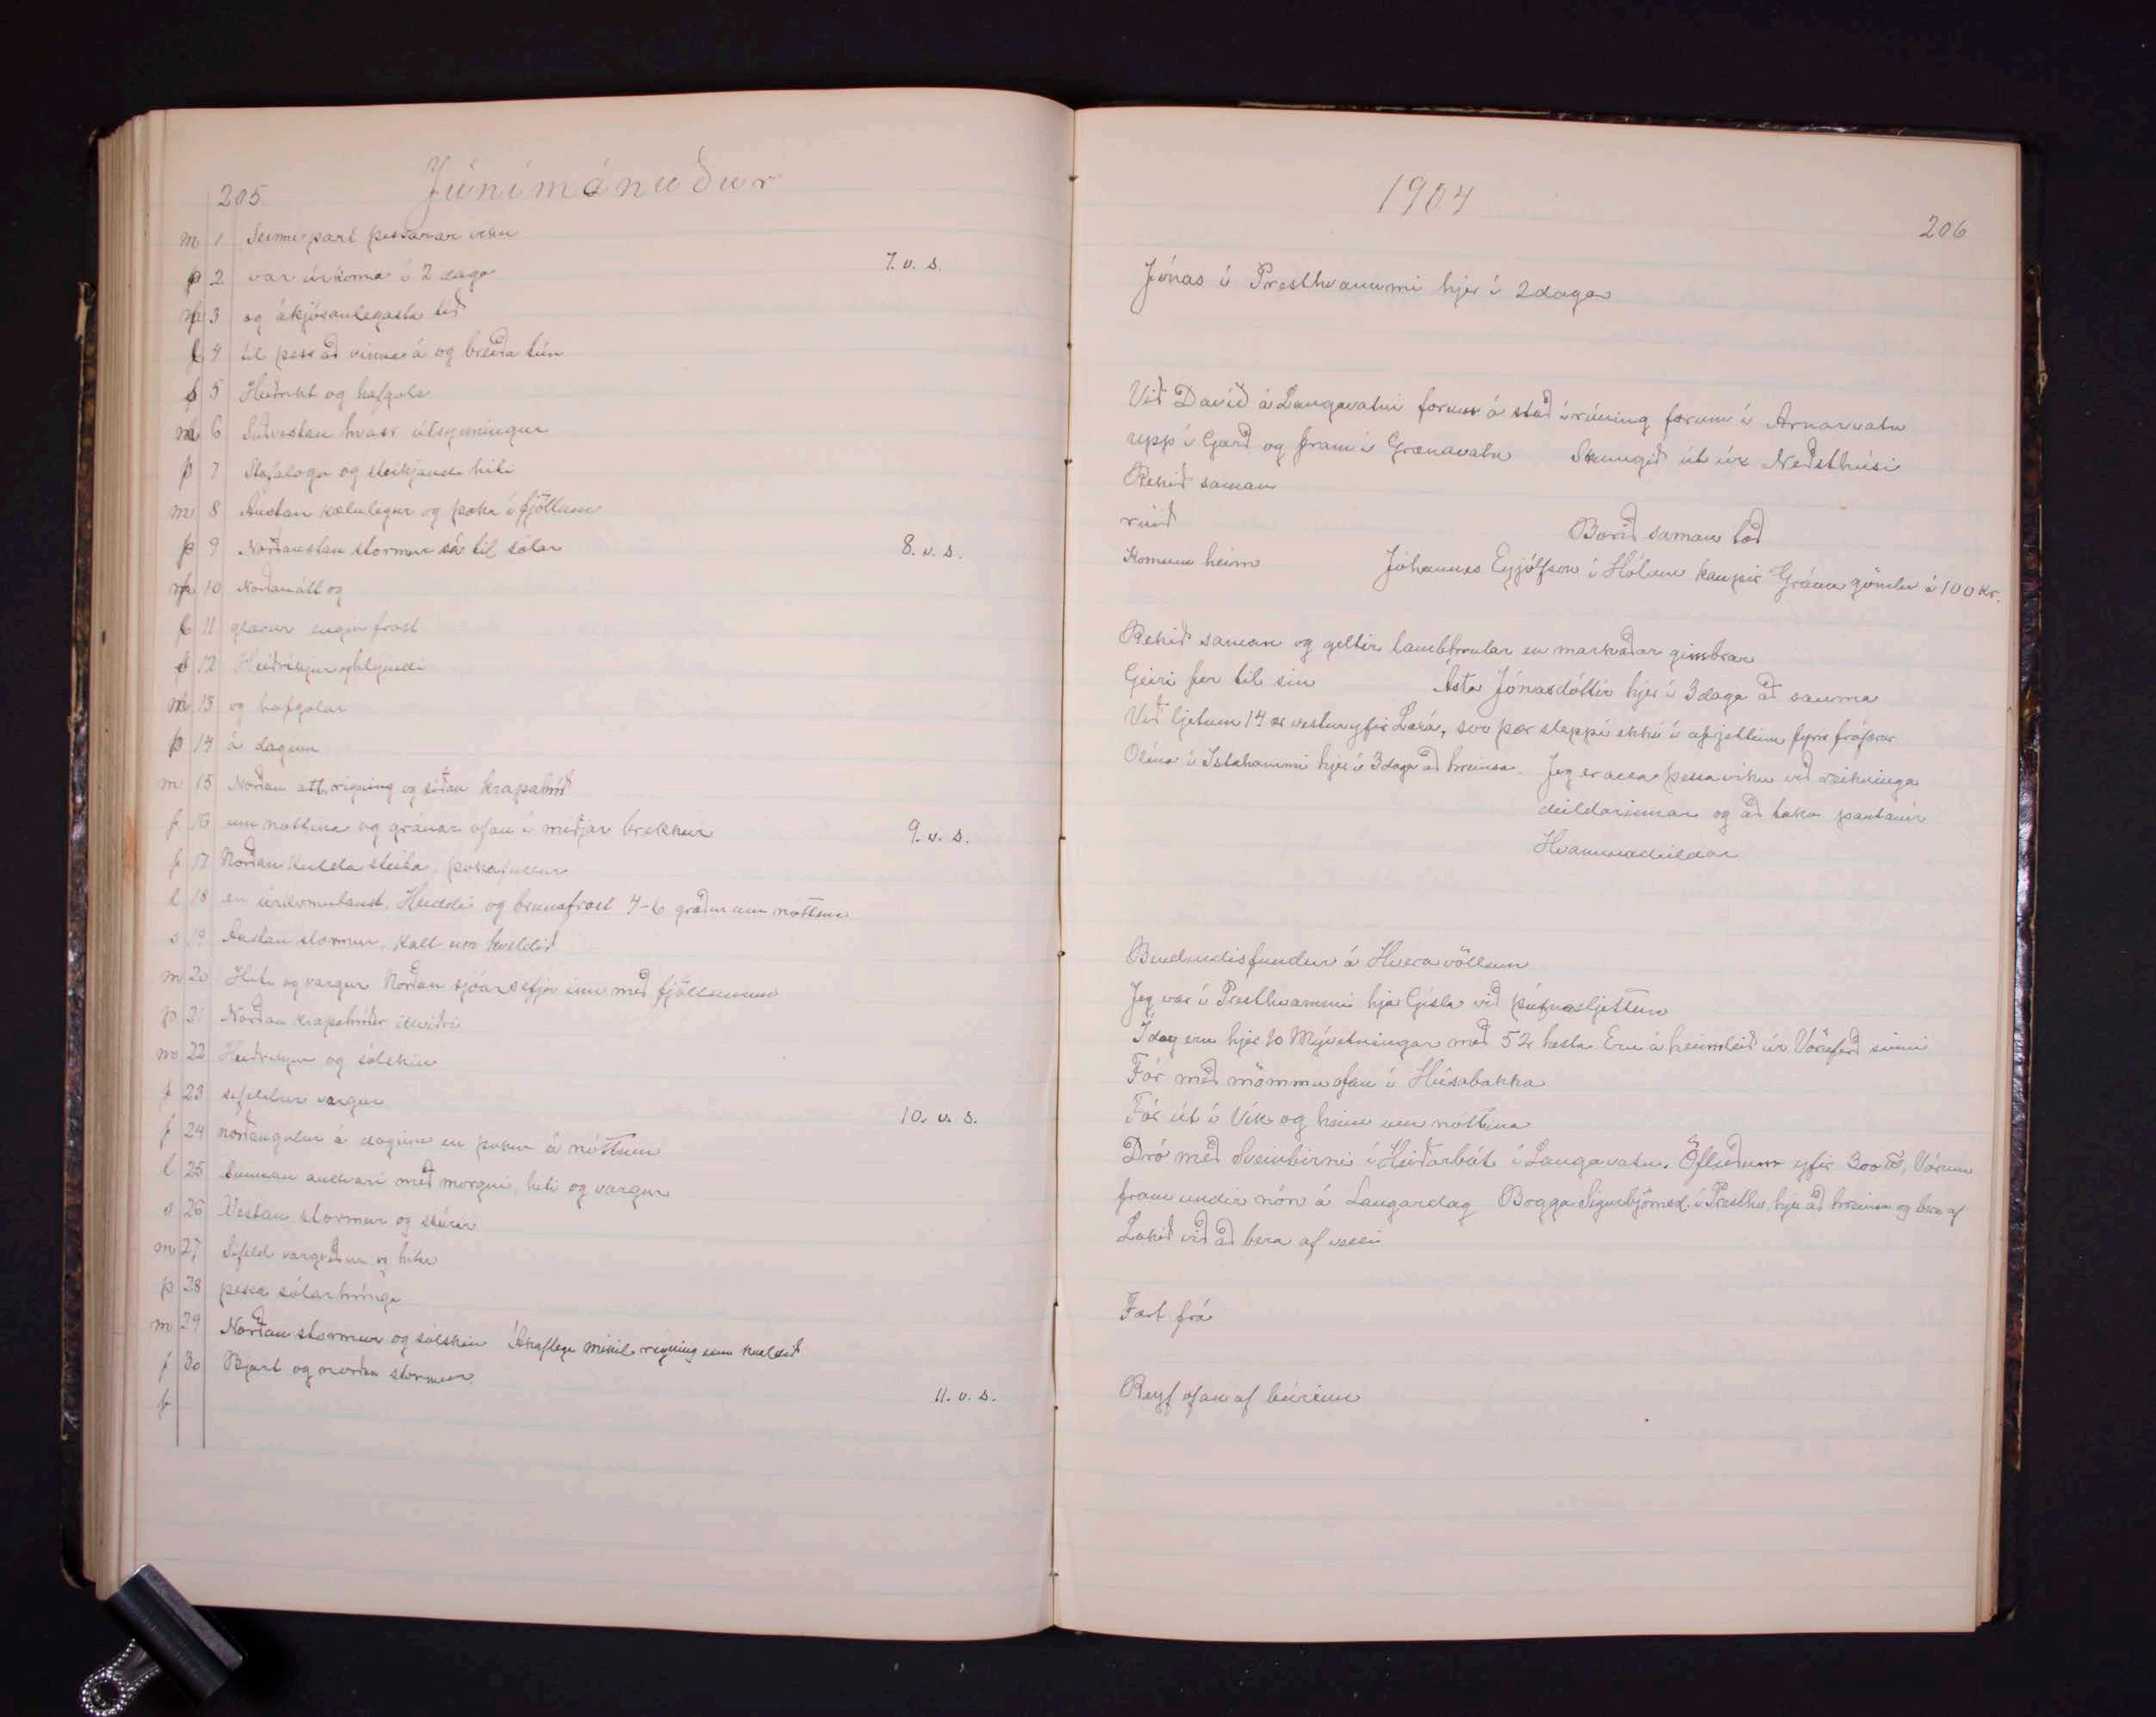 205 Júnímánuður
m 1 Seinnipart þessarar viku
þ 2 var úrkoma í 2 daga 7. v. s.
3 og ákjósanlegasta tíð
l 4 til þess að vinna á og breiða tún
s 5 Heiðríkt og hafgola
m 6 Suðvestan hvass útsynningur
þ 7 Stafalogn og steikjandi hiti
m 8 Austan kælulegur og þoka í fjöllum
9 Norðaustan stormur sá til sólar 8. v. s.
10 Norðanátt og
l 11 engin frost
s 12 Heiðríkjur og hlýindi
m 13 og hafgolur
þ 14 á daginn
m 15 Norðan átt, rigning og síðan krapahríð
f 16 um nóttina og gránar ofan í miðjar brekkur 9. v. s.
f 17 Norðan kulda steita, þokafullur
l 18 en úrkomulaust. Heiddi og brunafrost 4-6 gráður um nóttina
s 19 Austan stormur. Kalt um kveldið
m 20 Hiti og vargur Norðan inn með fjöllunum
þ 21 Norðan krapahríðar illviðri
m 22 Heiðríkjur og sólskin
f 23 vargur 10. v. s.
f 24 norðangolur á daginn en þokur á nóttum
l 25 Sunnan andvari með morgni, hiti og vargur
s 26 Vestan stormur og skúrir
m 27 Sífeld og hitar
þ 28 þessa sólarhringa
m 29 Norðan stormur og sólskin Ákaflega mikil rigning um kveldið
f 30 Bjart og norðan stormur.
f 11. v. s.
1904
206
Jónas í Presthvammi hjer í 2 daga
Við Davíð á Langavatni forum á stað í rúning forum í Arnarvatn
upp í Garð og fram í Grænavatn út úr Neðsthúsi
Rekið saman
rúið Borið saman tað
Komum heim Jóhannes Eyjólfson í Hólum kaupir Gránu gömlu á 100 kr.
Rekið saman og geltir lambhrútar en markaðar gimbrar
Geiri fer til sín Ásta Jónasdóttir hjer í 3 daga að sauma
Við ljetum 14 ær vestur yfir Laxá, svo þær sleppi ekki í afrjettina fyrir fráfærur
Ólína í Ystahvammi hjer í 3 daga að hreinsa. Jeg er alla þessa viku við reikninga
deildarinnar og að taka pantanir
Hvammadeildar
Bindindisfundur á Hveravöllum
Jeg var í Presthvammi hjá Gísla við þúfnasljettun
Í dag eru hjer 10 Mývetningar með 52 hesta Eru á heimleið úr Vöruferð sinni
Fór með mömmu ofan í Húsabakka
Fór út í Vík og heim um nóttina
Dró með Sveinbirni í Heiðarbót í Langavatn. Öfluðum yfir 300 ℔, Vórum
fram undir nón á Laugardag Bogga Sigurbjörnsd. í Presthv. hjer að hreinsa og bera af
Lokið við að bera af velli
Fært frá
Reyf ofan af búrinu